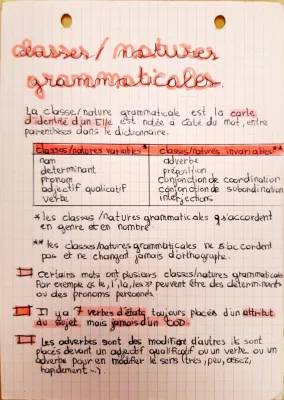 classes/natures
grammaticales.
La classe/nature grammaticale est la carte
d'identité d'un Elle est notée à côté du mot, entre
parenthèses dans le dictionnaire.
Classes/natures variables* classes/natures invariables**
nom adverbe
determinant préposition
pronom conjonction de coordination
adjectif qualificatif conjonction de subordination
verbe interjections
*les classes/natures grammaticales qui s'accordent
en genre et en nombre
**les classes/natures grammaticales ne s'accordent
pas et ne changent jamais d'orthographe.
Certains mots ont plusieurs classes/natures grammaticales
Par exemple « le, l', la, les » peuvent être des déterminants
ou des pronoms personnels.
Il y a 7 verbes d'états toujours placés d'un attribut
du sujet mais jamais d'un COD
Les adverbes sont des modifieurs d'autres. ils sont
placés devant un adjectif qualificatif ou un verbe ou un
adverbe pour en modifier le sens (très, peu, assez,
rapidement...).